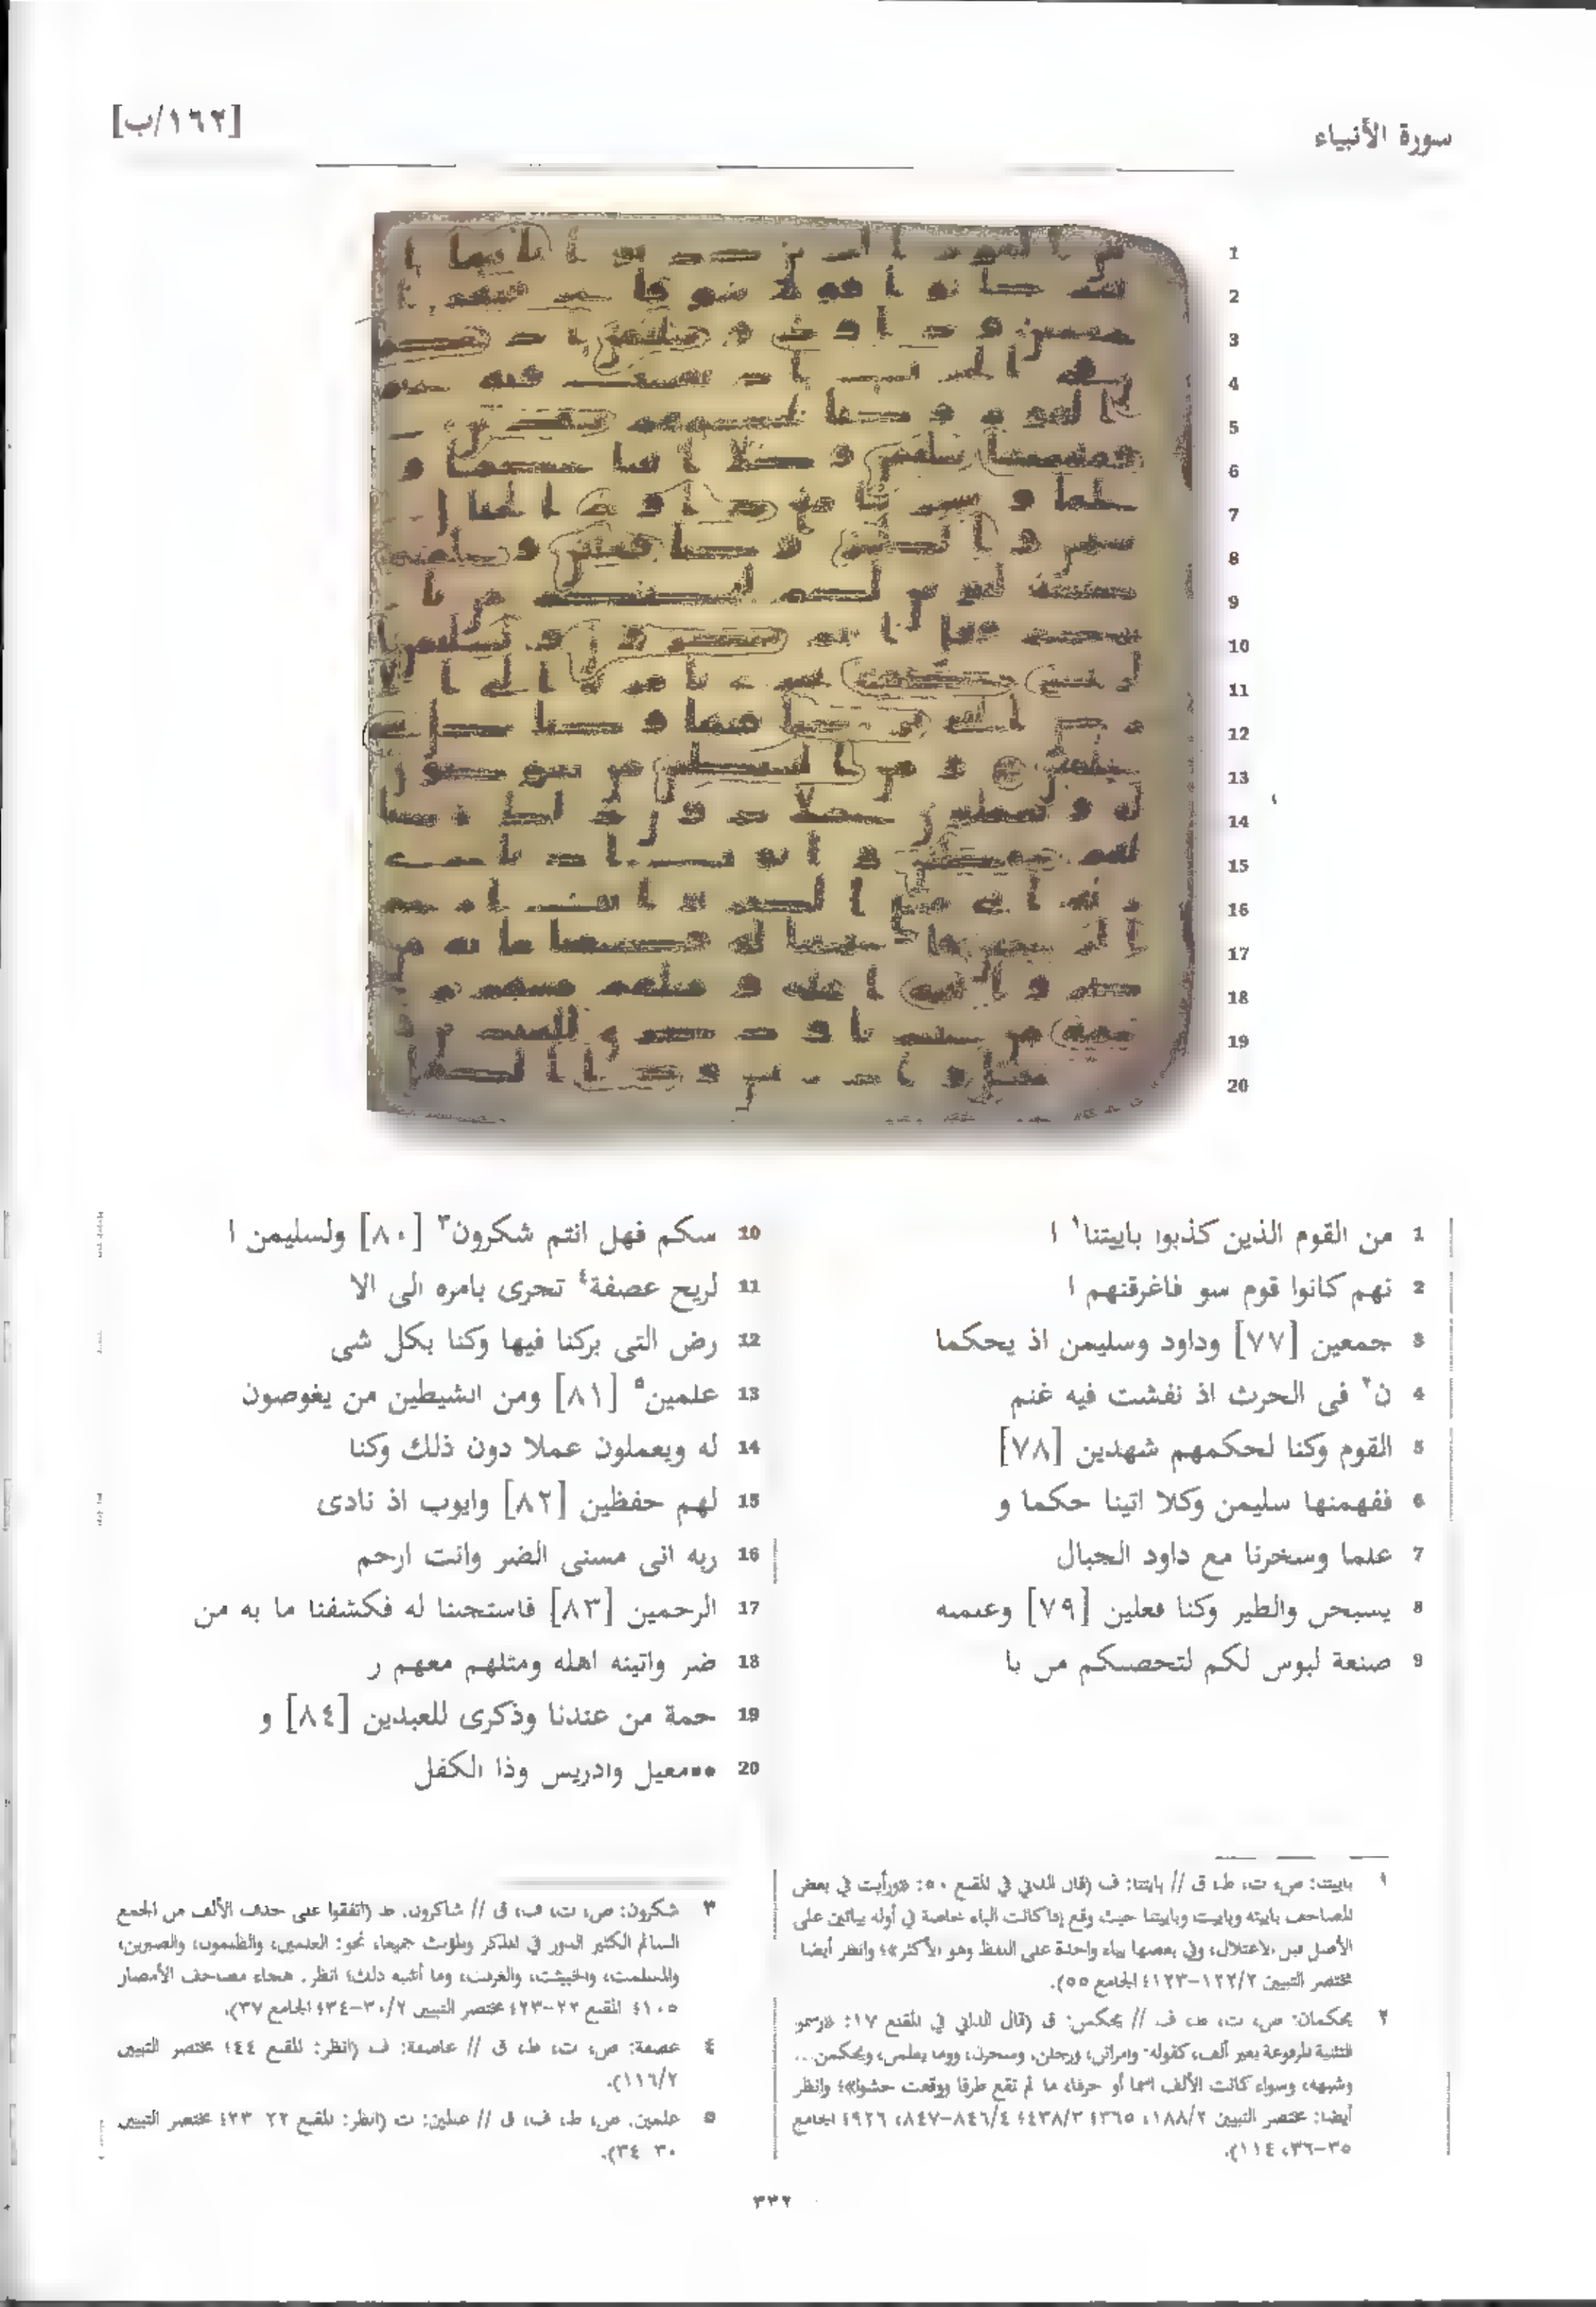 سورة الأنبياء
[١٦٢/ب]
1
2
3
4
5
6
7
8
9
10
11
12
13
14
15
16
17
18
19
20
1 من القوم الذين كذبوا باييتنا١ ا
2 نهم كانوا قوم سو فاغرقنهم ا
3 جمعين [٧٧] وداود وسليمن اذ يحكما
4 ن٢ فى الحرث اذ نفشت فيه غنم
5 القوم وكنا لحكمهم شهدين [٧٨]
6 ففهمنها سليمن وكلا اتينا حكما و
7 علما وسخرنا مع داود الجبال
8 يسبحن والطير وكنا فعلين [٧٩] وعلمنه
9 صنعة لبوس لكم لتحصنكم من با
10 سكم فهل انتم شكرون٣ [٨٠] ولسليمن ا
11 لريح عصفة٤ تجرى بامره الى الا
12 رض التى بركنا فيها وكنا بكل شى
13 علمين٥ [٨١] ومن الشيطين من يغوصون
14 له ويعملون عملا دون ذلك وكنا
15 لهم حفظين [٨٢] وايوب اذ نادى
16 ربه انى مسنى الضر وانت ارحم
17 الرحمين [٨٣] فاستجبنا له فكشفنا ما به من
18 ضر واتينه اهله ومثلهم معهم ر
19 حمة من عندنا وذكرى للعبدين [٨٤] و
20 ••معيل وادريس وذا الكفل
١ باييتنا: ص، ت، ط، ق // بايتنا: ف (قال الداني في المقنع ٥٠: «ورأيت في بعض
المصاحف باييته وباييت وباييتنا حيث وقع إذا كانت الباء خاصة في أوله بيائين على
الأصل قبل الاعتلال، وفي بعضها بياء واحدة على اللفظ وهو الأكثر»؛ وانظر أيضا
مختصر التبيين ١٢٢/٢–١٢٣؛ الجامع ٥٥).
٢ يحكمان: ص، ت، ط، ف // يحكمن: ق (قال الداني في المقنع ١٧: «رسمو
التثنية المرفوعة بغير ألف، كقوله: وامراتن، ورجلن، وسحرن، وما يعلمن، ويحكمن...
وشبهه، وسواء كانت الألف اسما أو حرفا، ما لم تقع طرفا ووقعت حشوا»؛ وانظر
أيضا: مختصر التبيين ١٨٨/٢، ٣٦٥؛ ٤٣٨/٣؛ ٨٤٦/٤–٨٤٧، ٩٢٦؛ الجامع
٣٥–٣٦، ١١٤).
٣ شكرون: ص، ت، ف، ق // شاكرون: ط (اتفقوا على حذف الألف من الجمع
السالم الكثير الدور في المذكر والمؤنث جميعا، نحو: العلمين، والظلمون، والصبرين،
والمسلمت، والخبيثت، والغرفت، وما أشبه ذلك؛ انظر: هجاء مصاحف الأمصار
١٠٥؛ المقنع ٢٢–٢٣؛ مختصر التبيين ٣٠/٢–٣٤؛ الجامع ٣٧).
٤ عصفة: ص، ت، ط، ق // عاصفة: ف (انظر: المقنع ٤٤؛ مختصر التبيين
١١٦/٢).
٥ علمين: ص، ط، ف، ق // علين: ت (انظر: المقنع ٢٢–٢٣؛ مختصر التبيين
٣٠–٣٤).
٣٣٢